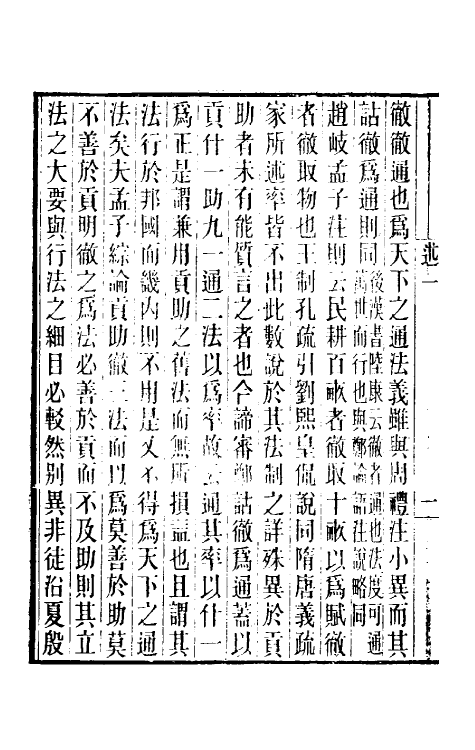 徹徹通也爲天下之通法義雖與周禮注小異而其
詁徹爲通則同後漢書陸康云徹者通也法度可通萬世而行也與鄭論語注說略同
趙岐孟子注則云民耕百畝者徹取十畝以爲賦徹
者徹取物也王制孔疏引劉熙皇侃說同隋唐義疏
家所述率皆不出此數說於其法制之詳殊異於貢
助者未有能質言之者也今諦審鄭詁徹爲通蓋以
貢什一助九一通二法以爲率故云通其率以什一
爲正是謂兼用貢助之舊法而無所損益也且謂其
法行於邦國而畿内則不用是又不得爲天下之通
法矣夫孟子綜論貢助徹三法而以爲莫善於助莫
不善於貢明徹之爲法必善於貢而不及助則其立
法之大要與行法之細目必較然別異非徒沿夏殷
述一
一